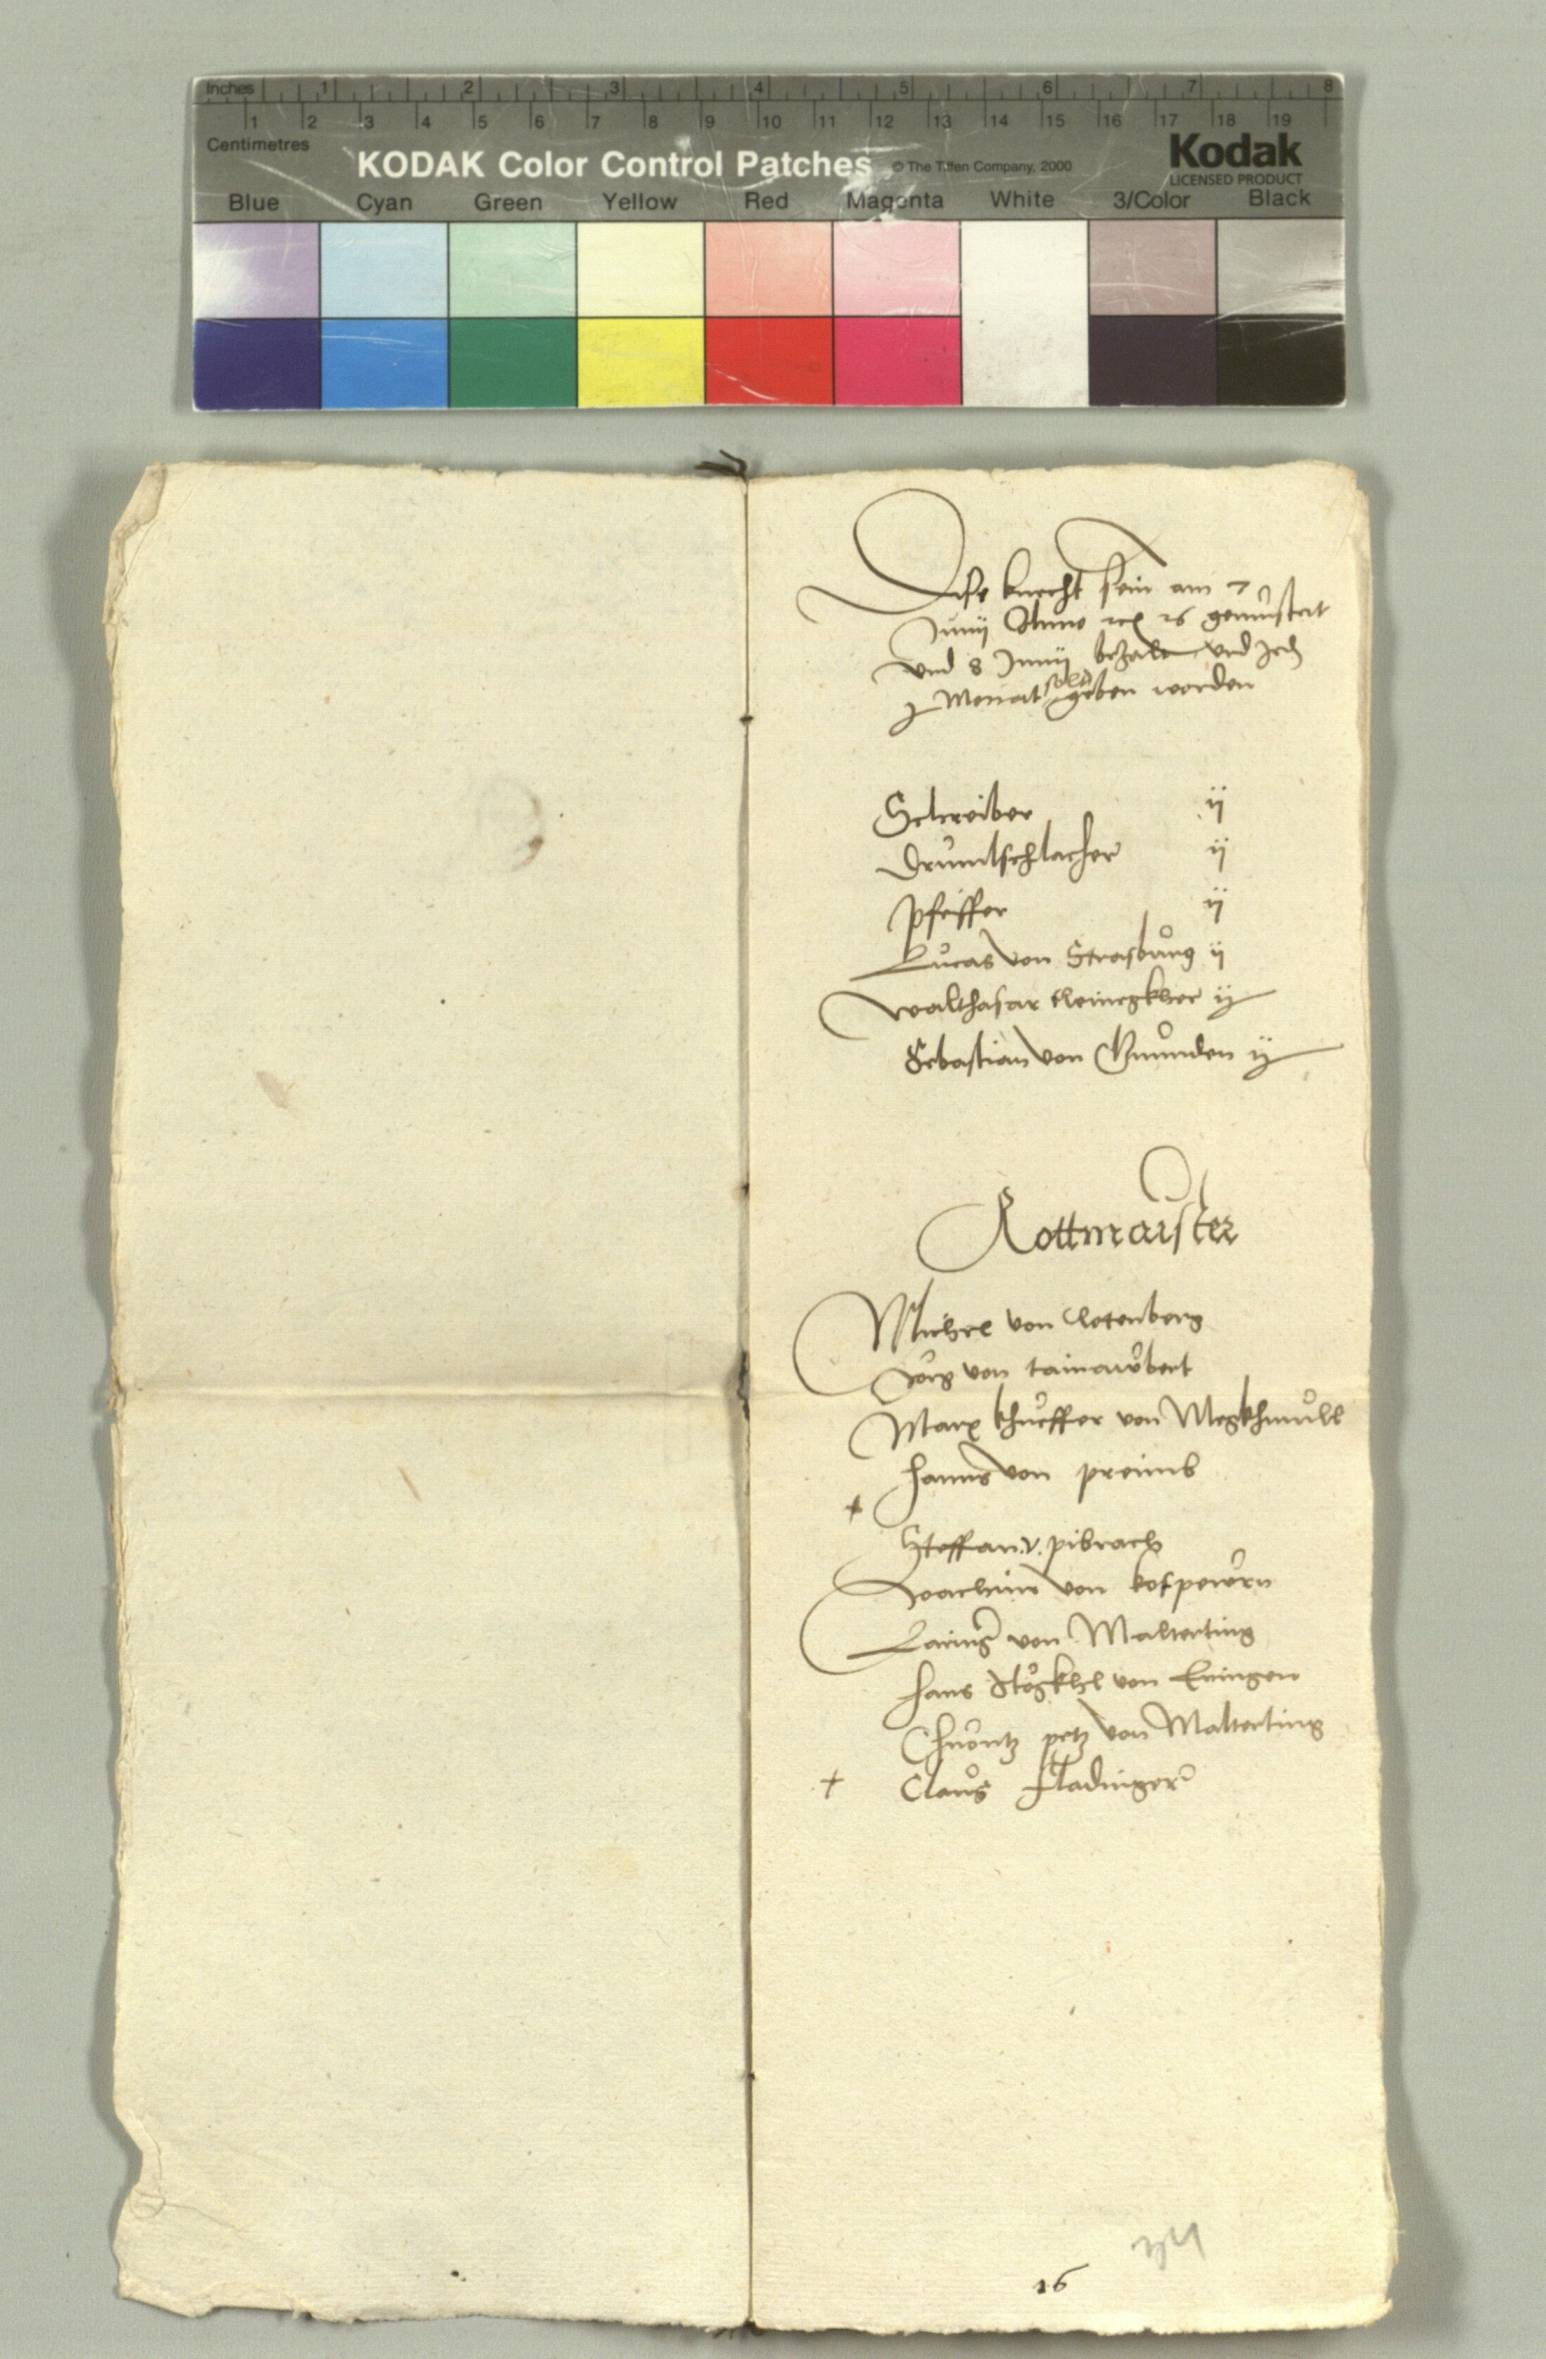 Inches 1 2 3 4 5 6 7 8
1 2 3 4 5 6 7 8 9 10 11 12 13 14 15 16 17 18 19
Centimetres
KODAK Color Control Patches © The Tiffen Company, 2000 Kodak
LICENSED PRODUCT
Blue Cyan Green Yellow Red Magenta White 3/Color Black
Dise knecht sein am 7
Junij Anno 26 gemustert
vnd 8 Junij bezalt vnd
j Monat sold geben worden
Schreiber ij
Drumlschlacher ij
Pfeiffer ij
Lucas von Strasburg ij
Walthasar ij
Sebastian von Gmunden ij
Rottmaister
Michel von Rotenberg
Jorg von
Marx khueffer von Megkhmull
Hanns von preims
+
Steffan .v. pibrach
Joachim von kospewrn
von Malterting
Hans Stögkhl von Eningen
Chuontz petz von Malterting
+ Claus fladinger
34
16